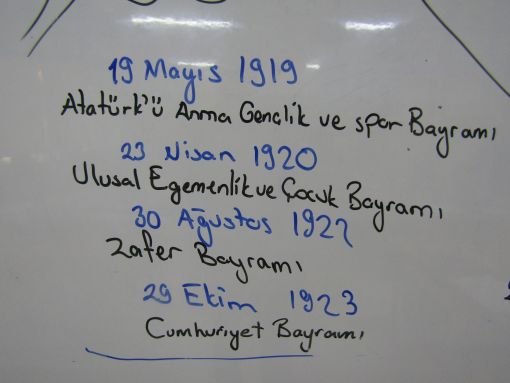 19 Mayıs 1919
Atatürk'ü Anma Gençlik ve spor Bayramı
23 Nisan 1920
Ulusal Egemenlik ve Çocuk Bayramı
30 Ağustos 1922
Zafer Bayramı
29 Ekim 1923
Cumhuriyet Bayramı